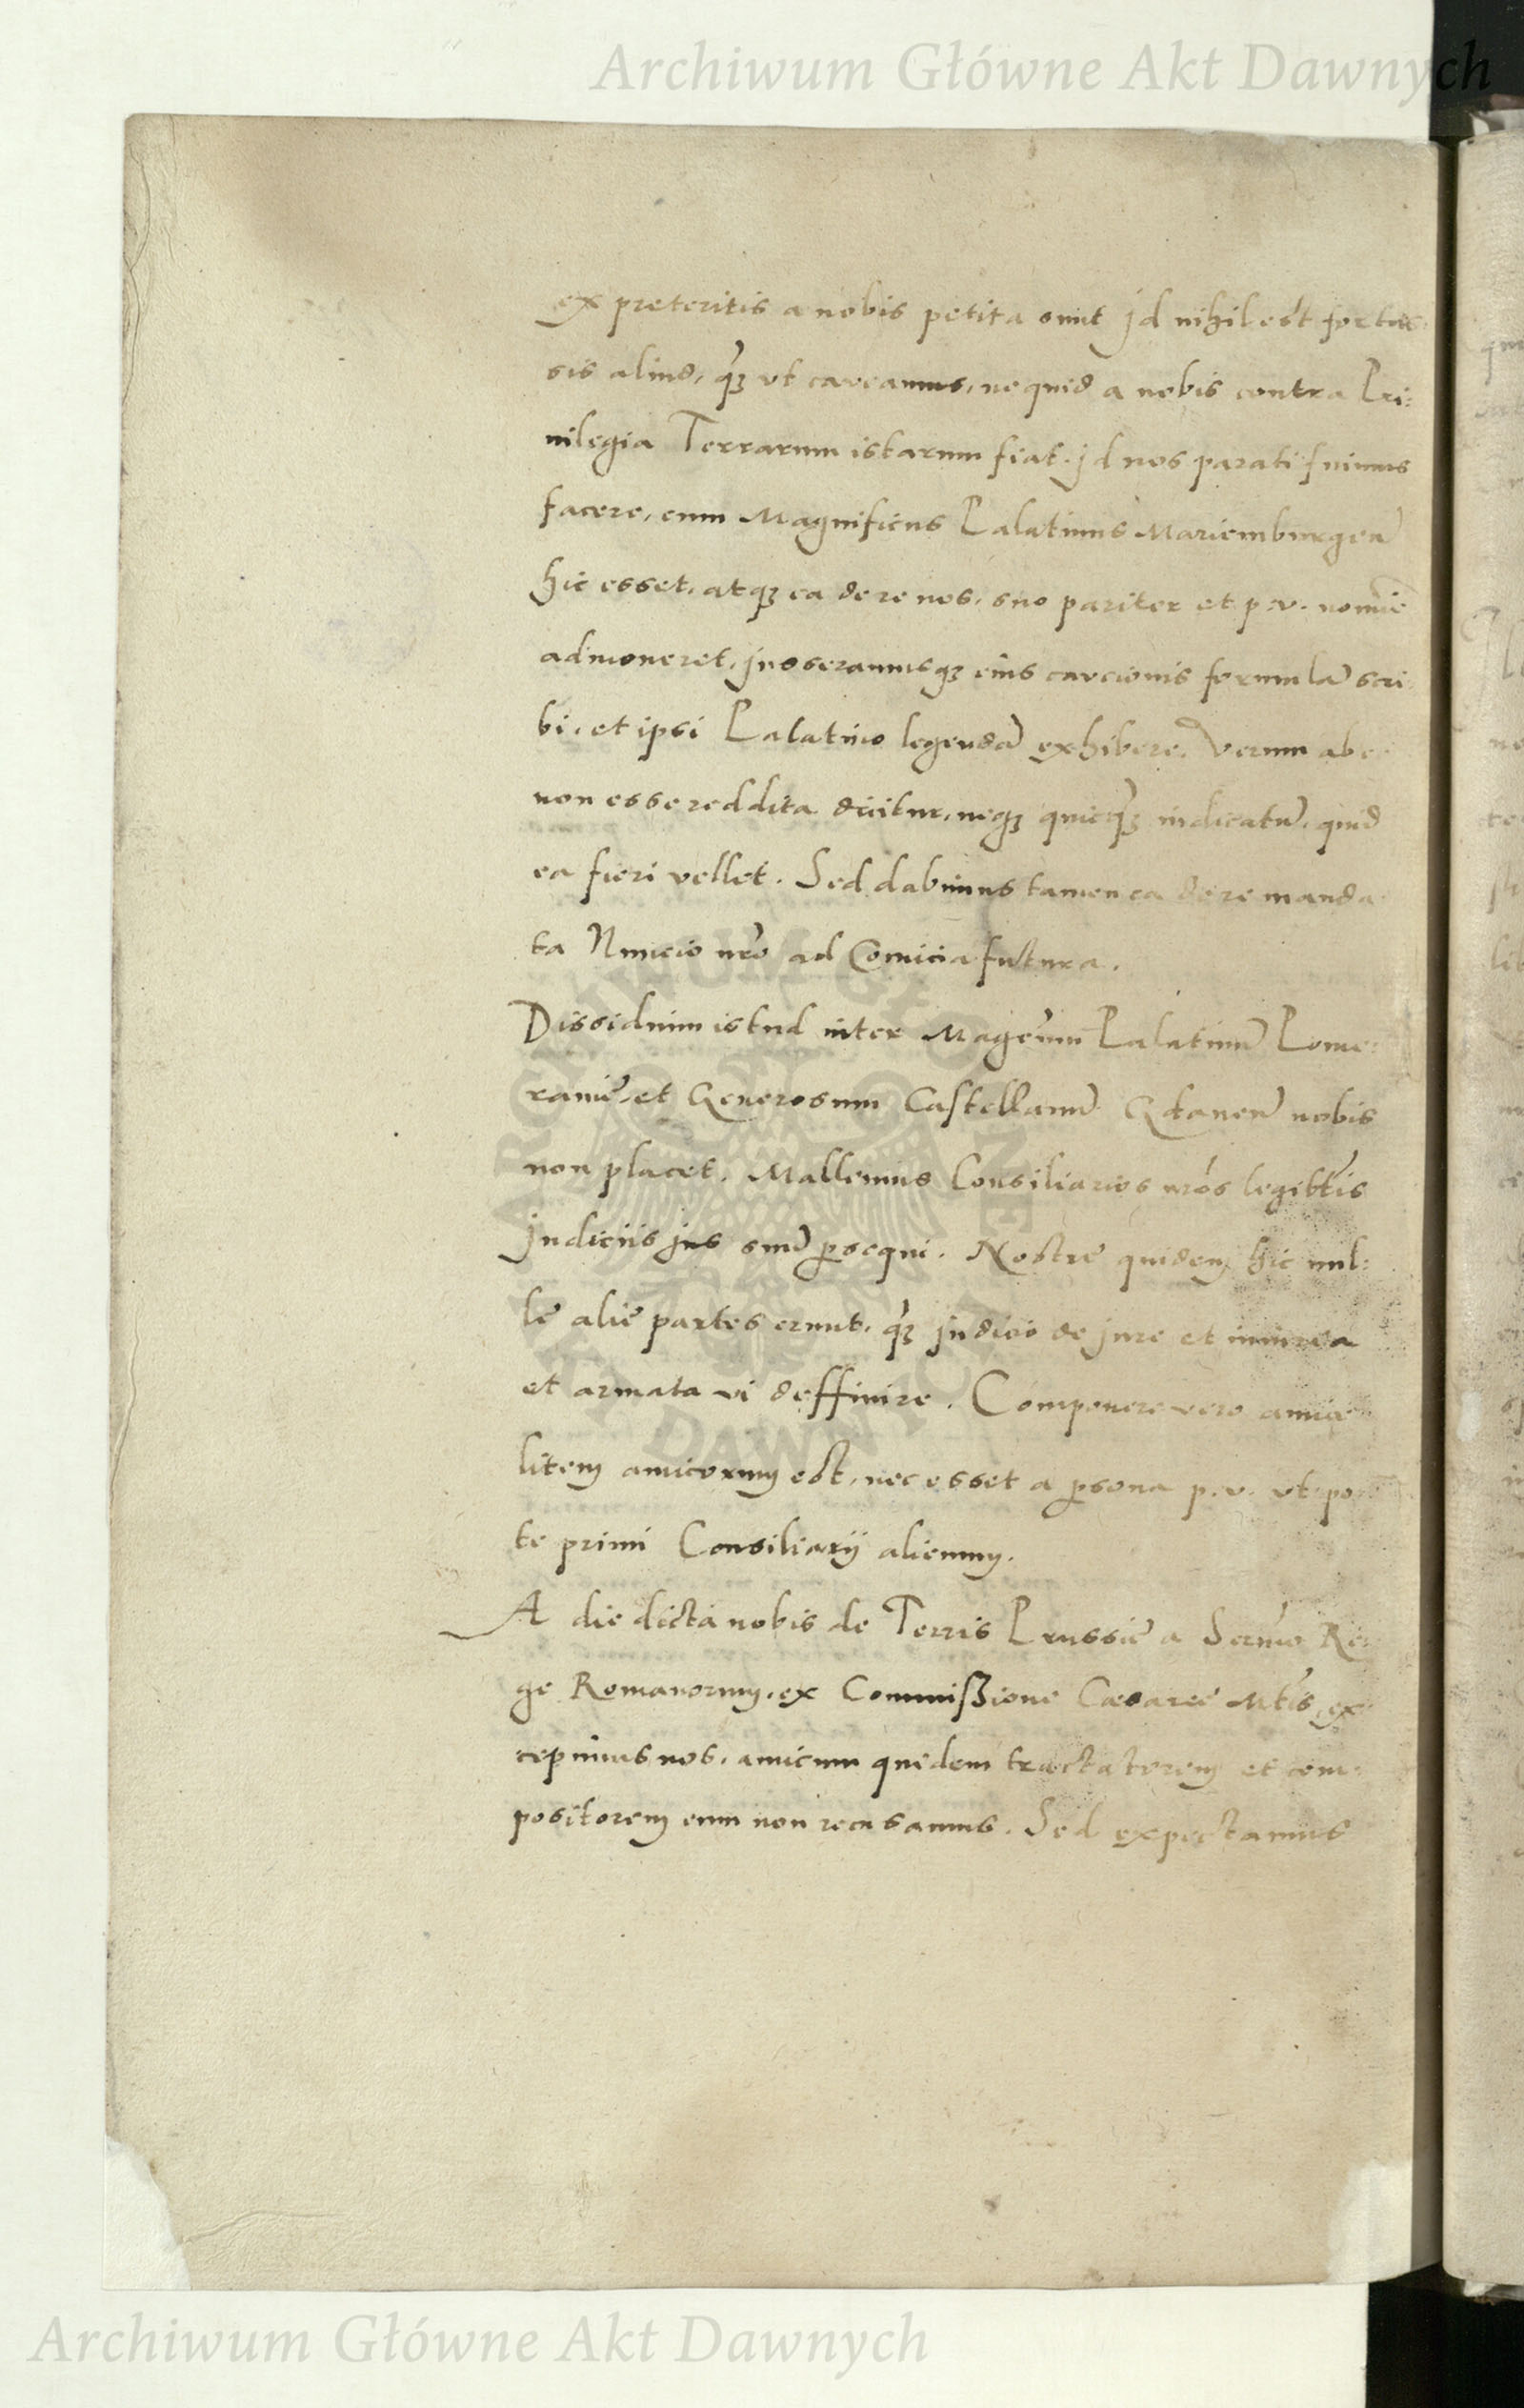 Archiwum Główne Akt Dawnych
ex preteritis a nobis petita sunt jd nihil est fortas
sis aliud, q̃ꝫ vt caveamus, ne quid a nobis contra Pri:
uilegia Terrarum istarum fiat. jd nos parati fuimus
facere, cum Magnificus Palatinus Mariemburgeñ
hic esset, atqꝫ ea de re nos, suo pariter et p. v. nomiē
admoneret, jusseramusqꝫ eius caucionis formulā scri
bi, et ipsi Palatino legendā exhibere. Verum ab
non esse reddita dicitur, neqꝫ quicq̃ꝫ indicatū, quid
ea fieri vellet. Sed dabimus tamen ea de re manda
ta Nuncio nr̃o ad Comicia futura.
Dissidium istud inter Magcũm Palatinū Pome:
ranię, et Generosum Castellanū Gdaneñ nobis
non placet. Mallemus Consiliarios nr̃os legitĩs
judiciis jus suū ꝑsequi. Nostrę quidem hic nul:
lę alię partes erunt, q̃ꝫ judicio de jure et iniuria
et armata vi deffinire. Componere vero amice
litem amicorum est, nec esset a ꝑsona p. v. vt po
te primi Consiliarij alienum.
A die dicta nobis de Terris Prussię a Sermo Re:
ge Romanorum, ex Commissione Cæsareę Mtĩs, ex
cepimus nos, amicum quidem tractatorem et com:
positorem eum non recusamus. Sed expectamus
ARCHIWUM GŁÓWNE
AKT DAWNYCH
Archiwum Główne Akt Dawnych